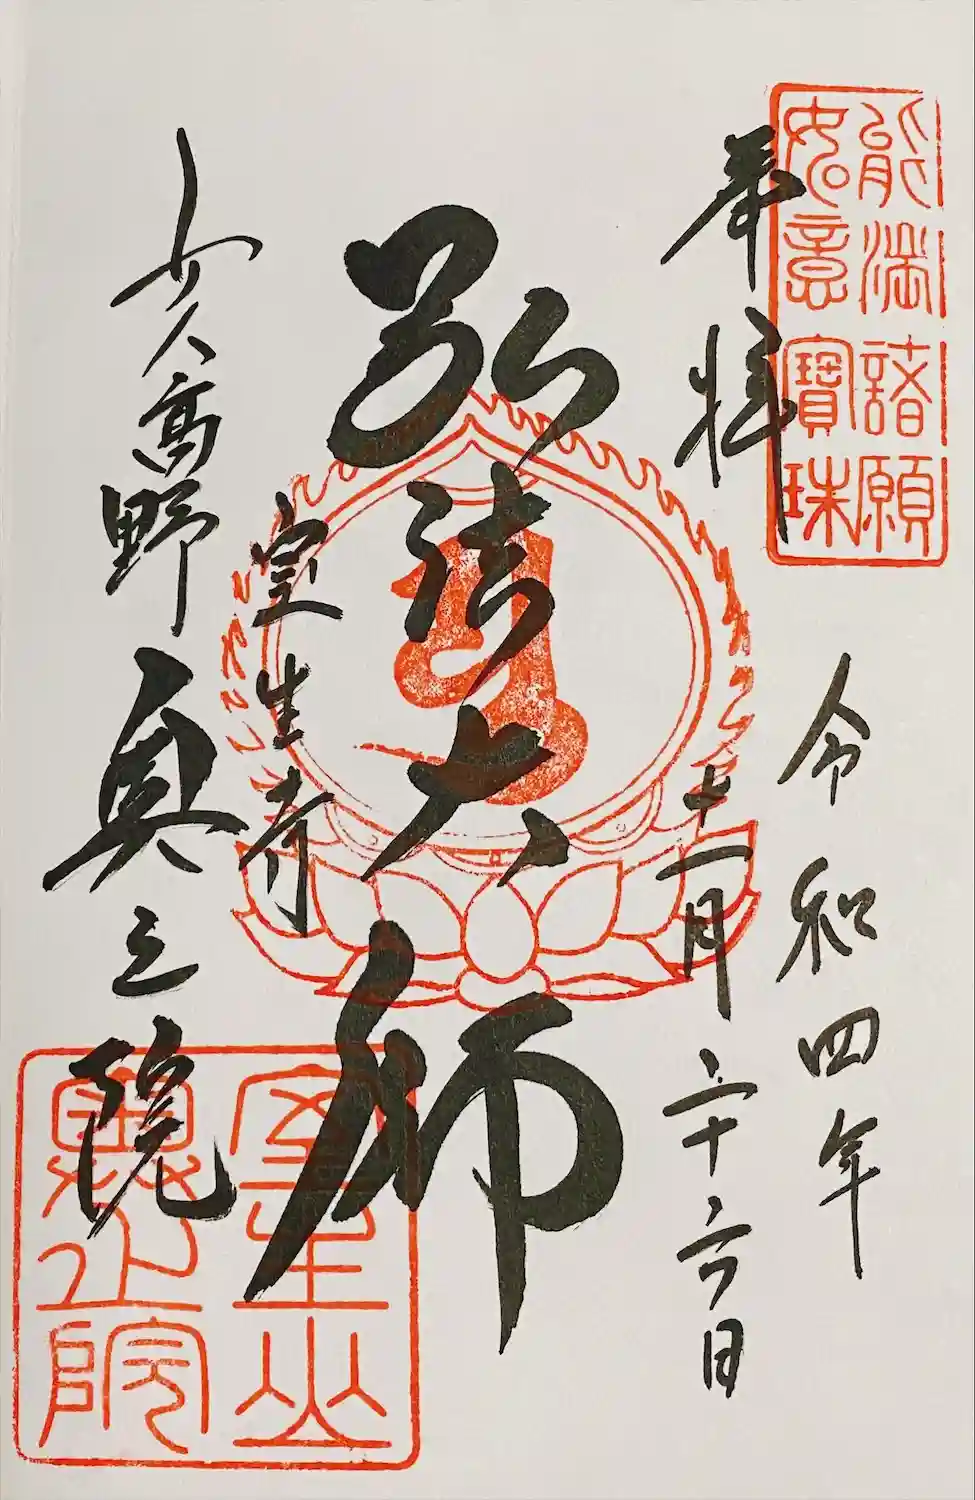 能満諸願
如意寳珠
奉拝
令和四年
十一月二十六日
弘法大師
室生寺
女人高野 奥之院
室生山
奥之院